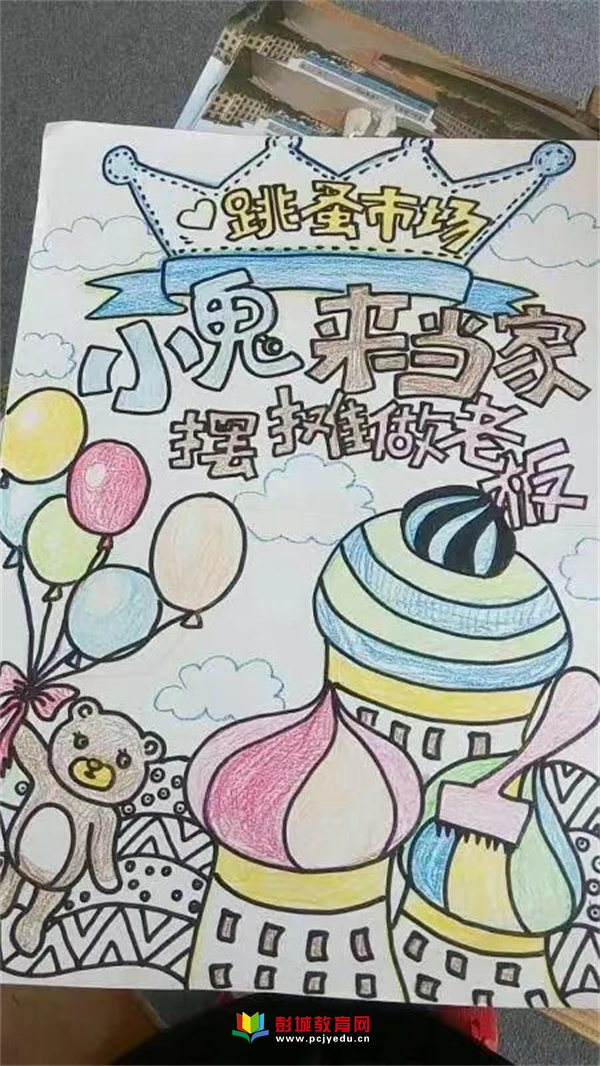 跳蚤市场
小鬼来当家
摆摊做老板
彭城教育网
www.pcjyedu.cn